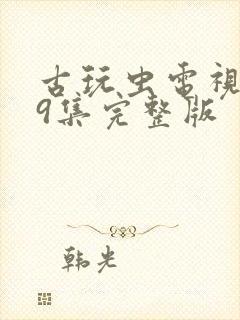 古玩虫电视
9集完整版
韩光